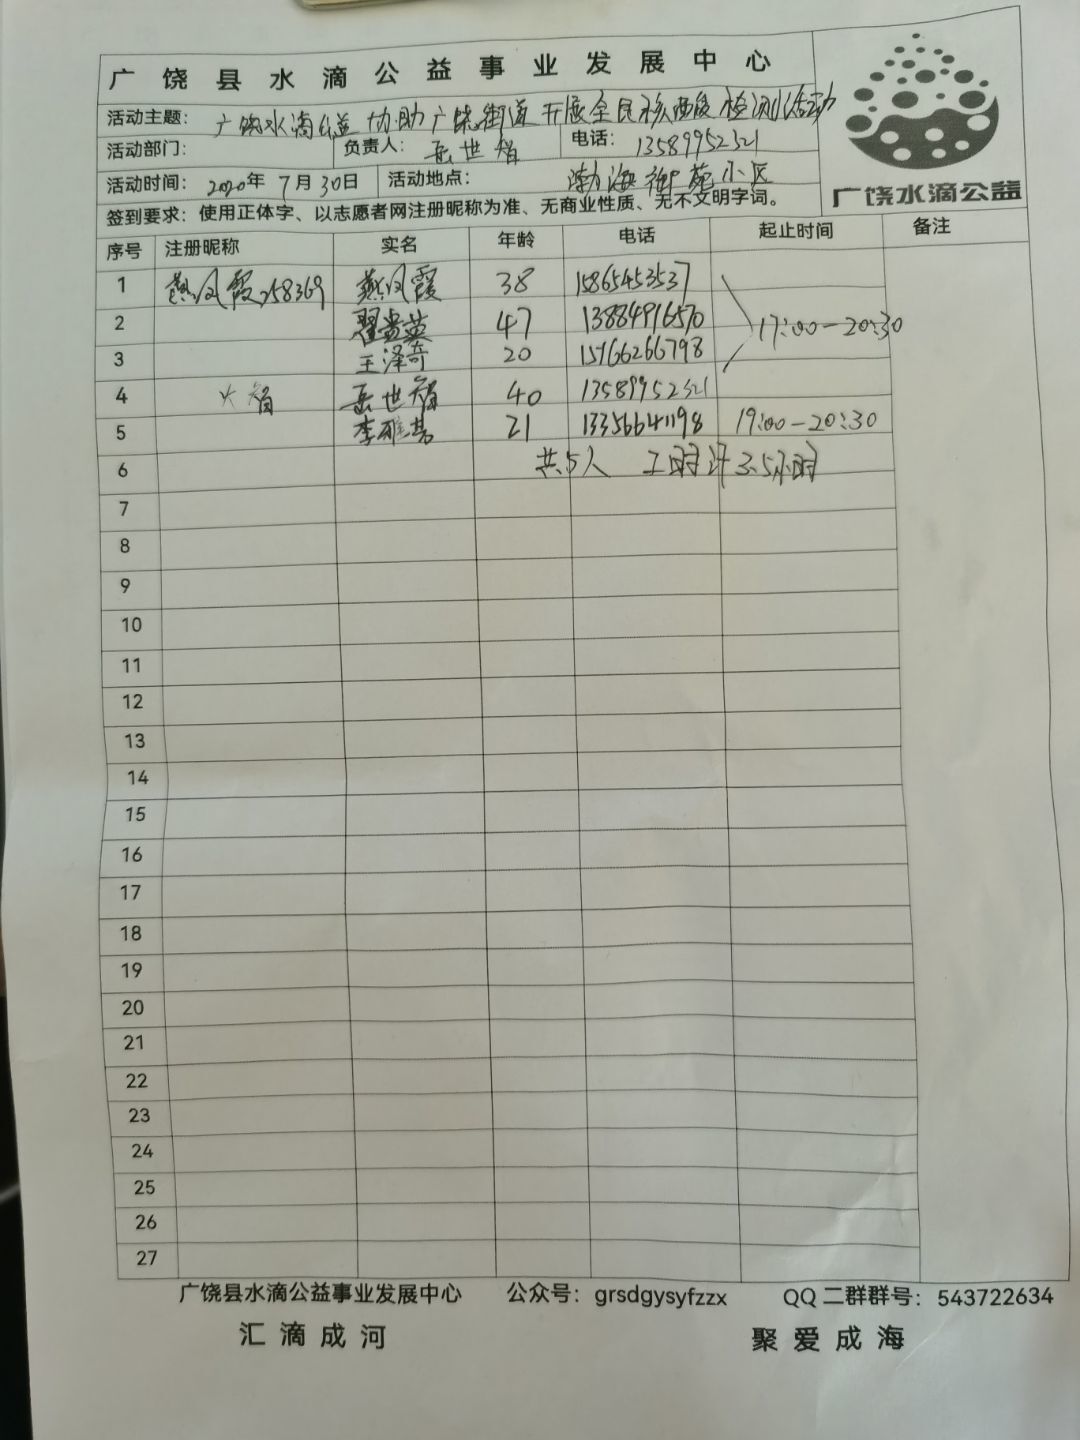 广饶县水滴公益事业发展中心
活动主题: 广饶水滴公益协助广饶街道开展全民核酸检测活动
活动部门: 负责人: 岳世智 电话: 13589952321
活动时间: 2020年7月30日 活动地点: 渤海御苑小区
广饶水滴公益
签到要求: 使用正体字、以志愿者网注册昵称为准、无商业性质、无不文明字词。
序号 注册昵称 实名 年龄 电话 起止时间 备注
1 燕凤霞258369 燕凤霞 38 15865453537
2 翟贵英 47 13884916570 17:00—20:30
3 王泽奇 20 15766266798
4 火智 岳世智 40 13589952321
5 李雅 21 13356641198 19:00—20:30
6 共5人 工时计3.5小时
7
8
9
10
11
12
13
14
15
16
17
18
19
20
21
22
23
24
25
26
27
广饶县水滴公益事业发展中心 公众号: grsdgysyfzzx QQ二群群号: 543722634
汇滴成河 聚爱成海